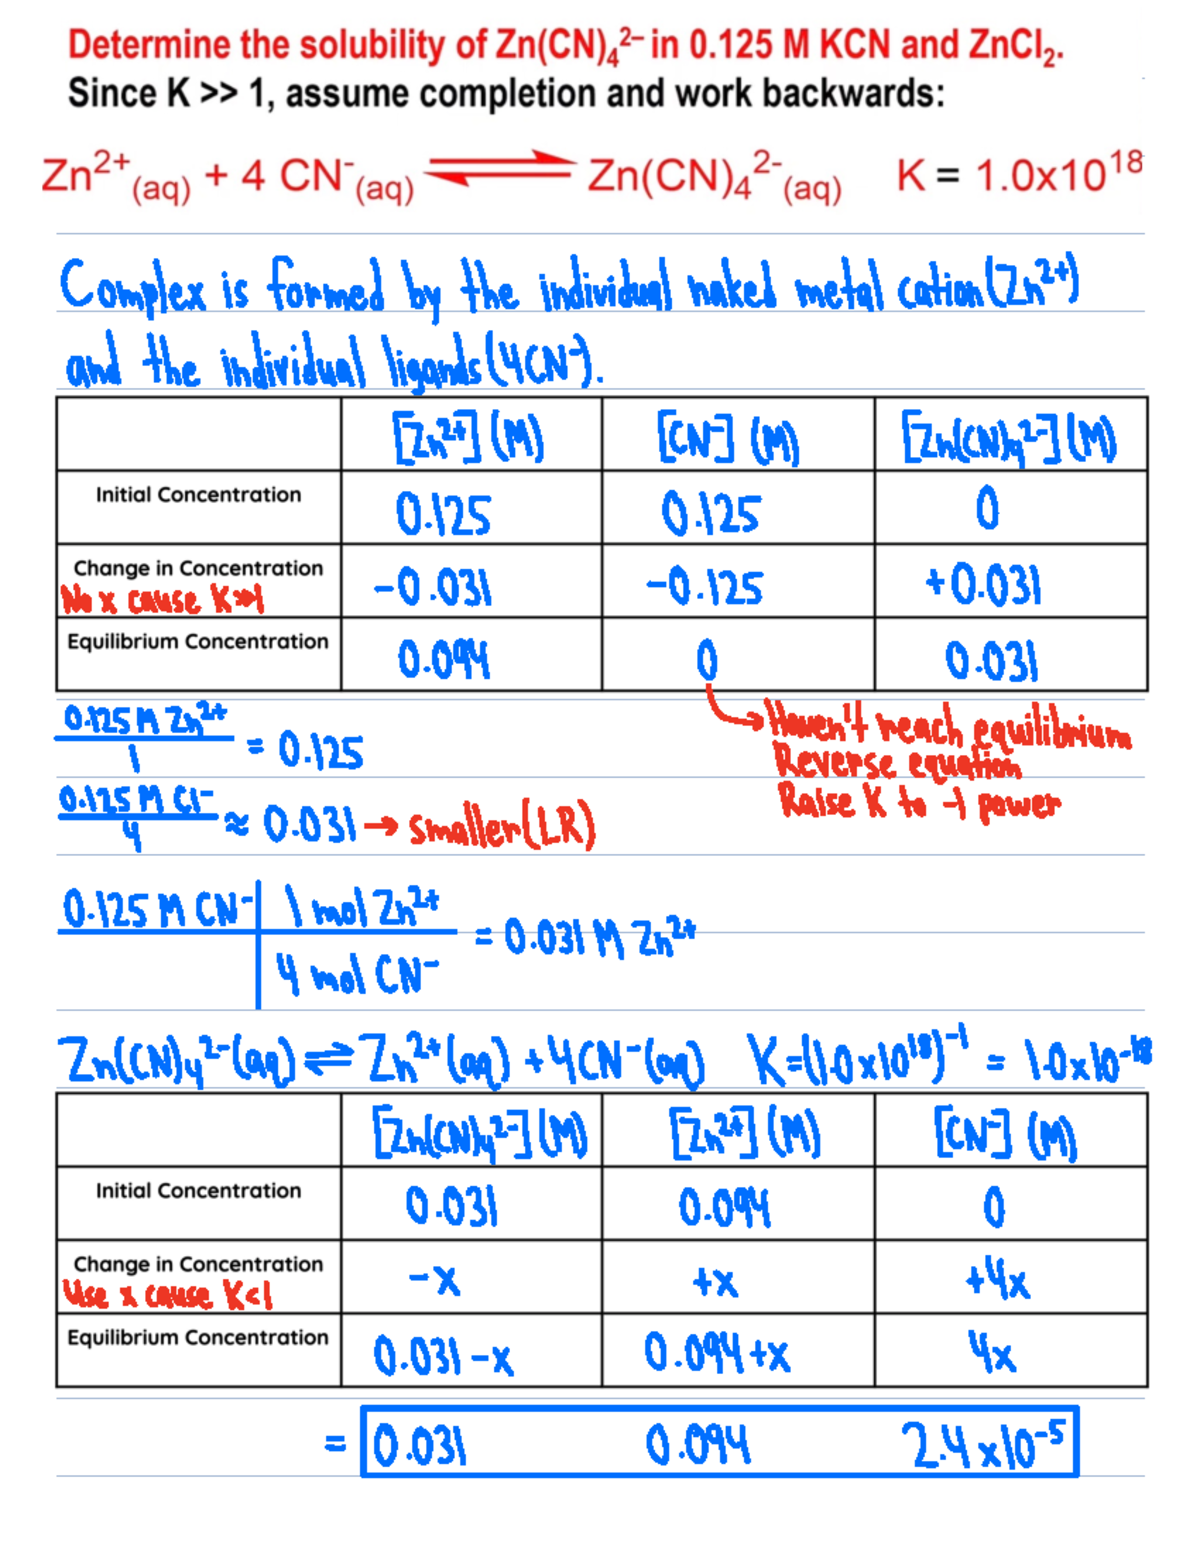 Determine the solubility of Zn(CN)₄²⁻ in 0.125 M KCN and ZnCl₂.
Since K >> 1, assume completion and work backwards:
Zn²⁺(aq) + 4 CN⁻(aq) ⇌ Zn(CN)₄²⁻(aq) K = 1.0x10¹⁸
Complex is formed by the individual naked metal cation (Zn²⁺)
and the individual ligands (4CN⁻).
[Zn²⁺] (M) [CN⁻] (M) [Zn(CN)₄²⁻] (M)
Initial Concentration 0.125 0.125 0
Change in Concentration -0.031 -0.125 +0.031
No x cause K>>1
Equilibrium Concentration 0.094 0 0.031
→ Haven't reach equilibrium
Reverse equation
Raise K to -1 power
0.125 M Zn²⁺ / 1 = 0.125
0.125 M Cl⁻ / 4 ≈ 0.031 → smaller (LR)
0.125 M CN⁻ | 1 mol Zn²⁺
= 0.031 M Zn²⁺
4 mol CN⁻
Zn(CN)₄²⁻(aq) ⇌ Zn²⁺(aq) + 4CN⁻(aq) K=(1.0x10¹⁸)⁻¹ = 1.0x10⁻¹⁸
[Zn(CN)₄²⁻] (M) [Zn²⁺] (M) [CN⁻] (M)
Initial Concentration 0.031 0.094 0
Change in Concentration -x +x +4x
Use x cause K<1
Equilibrium Concentration 0.031-x 0.094+x 4x
= 0.031 0.094 2.4x10⁻⁵